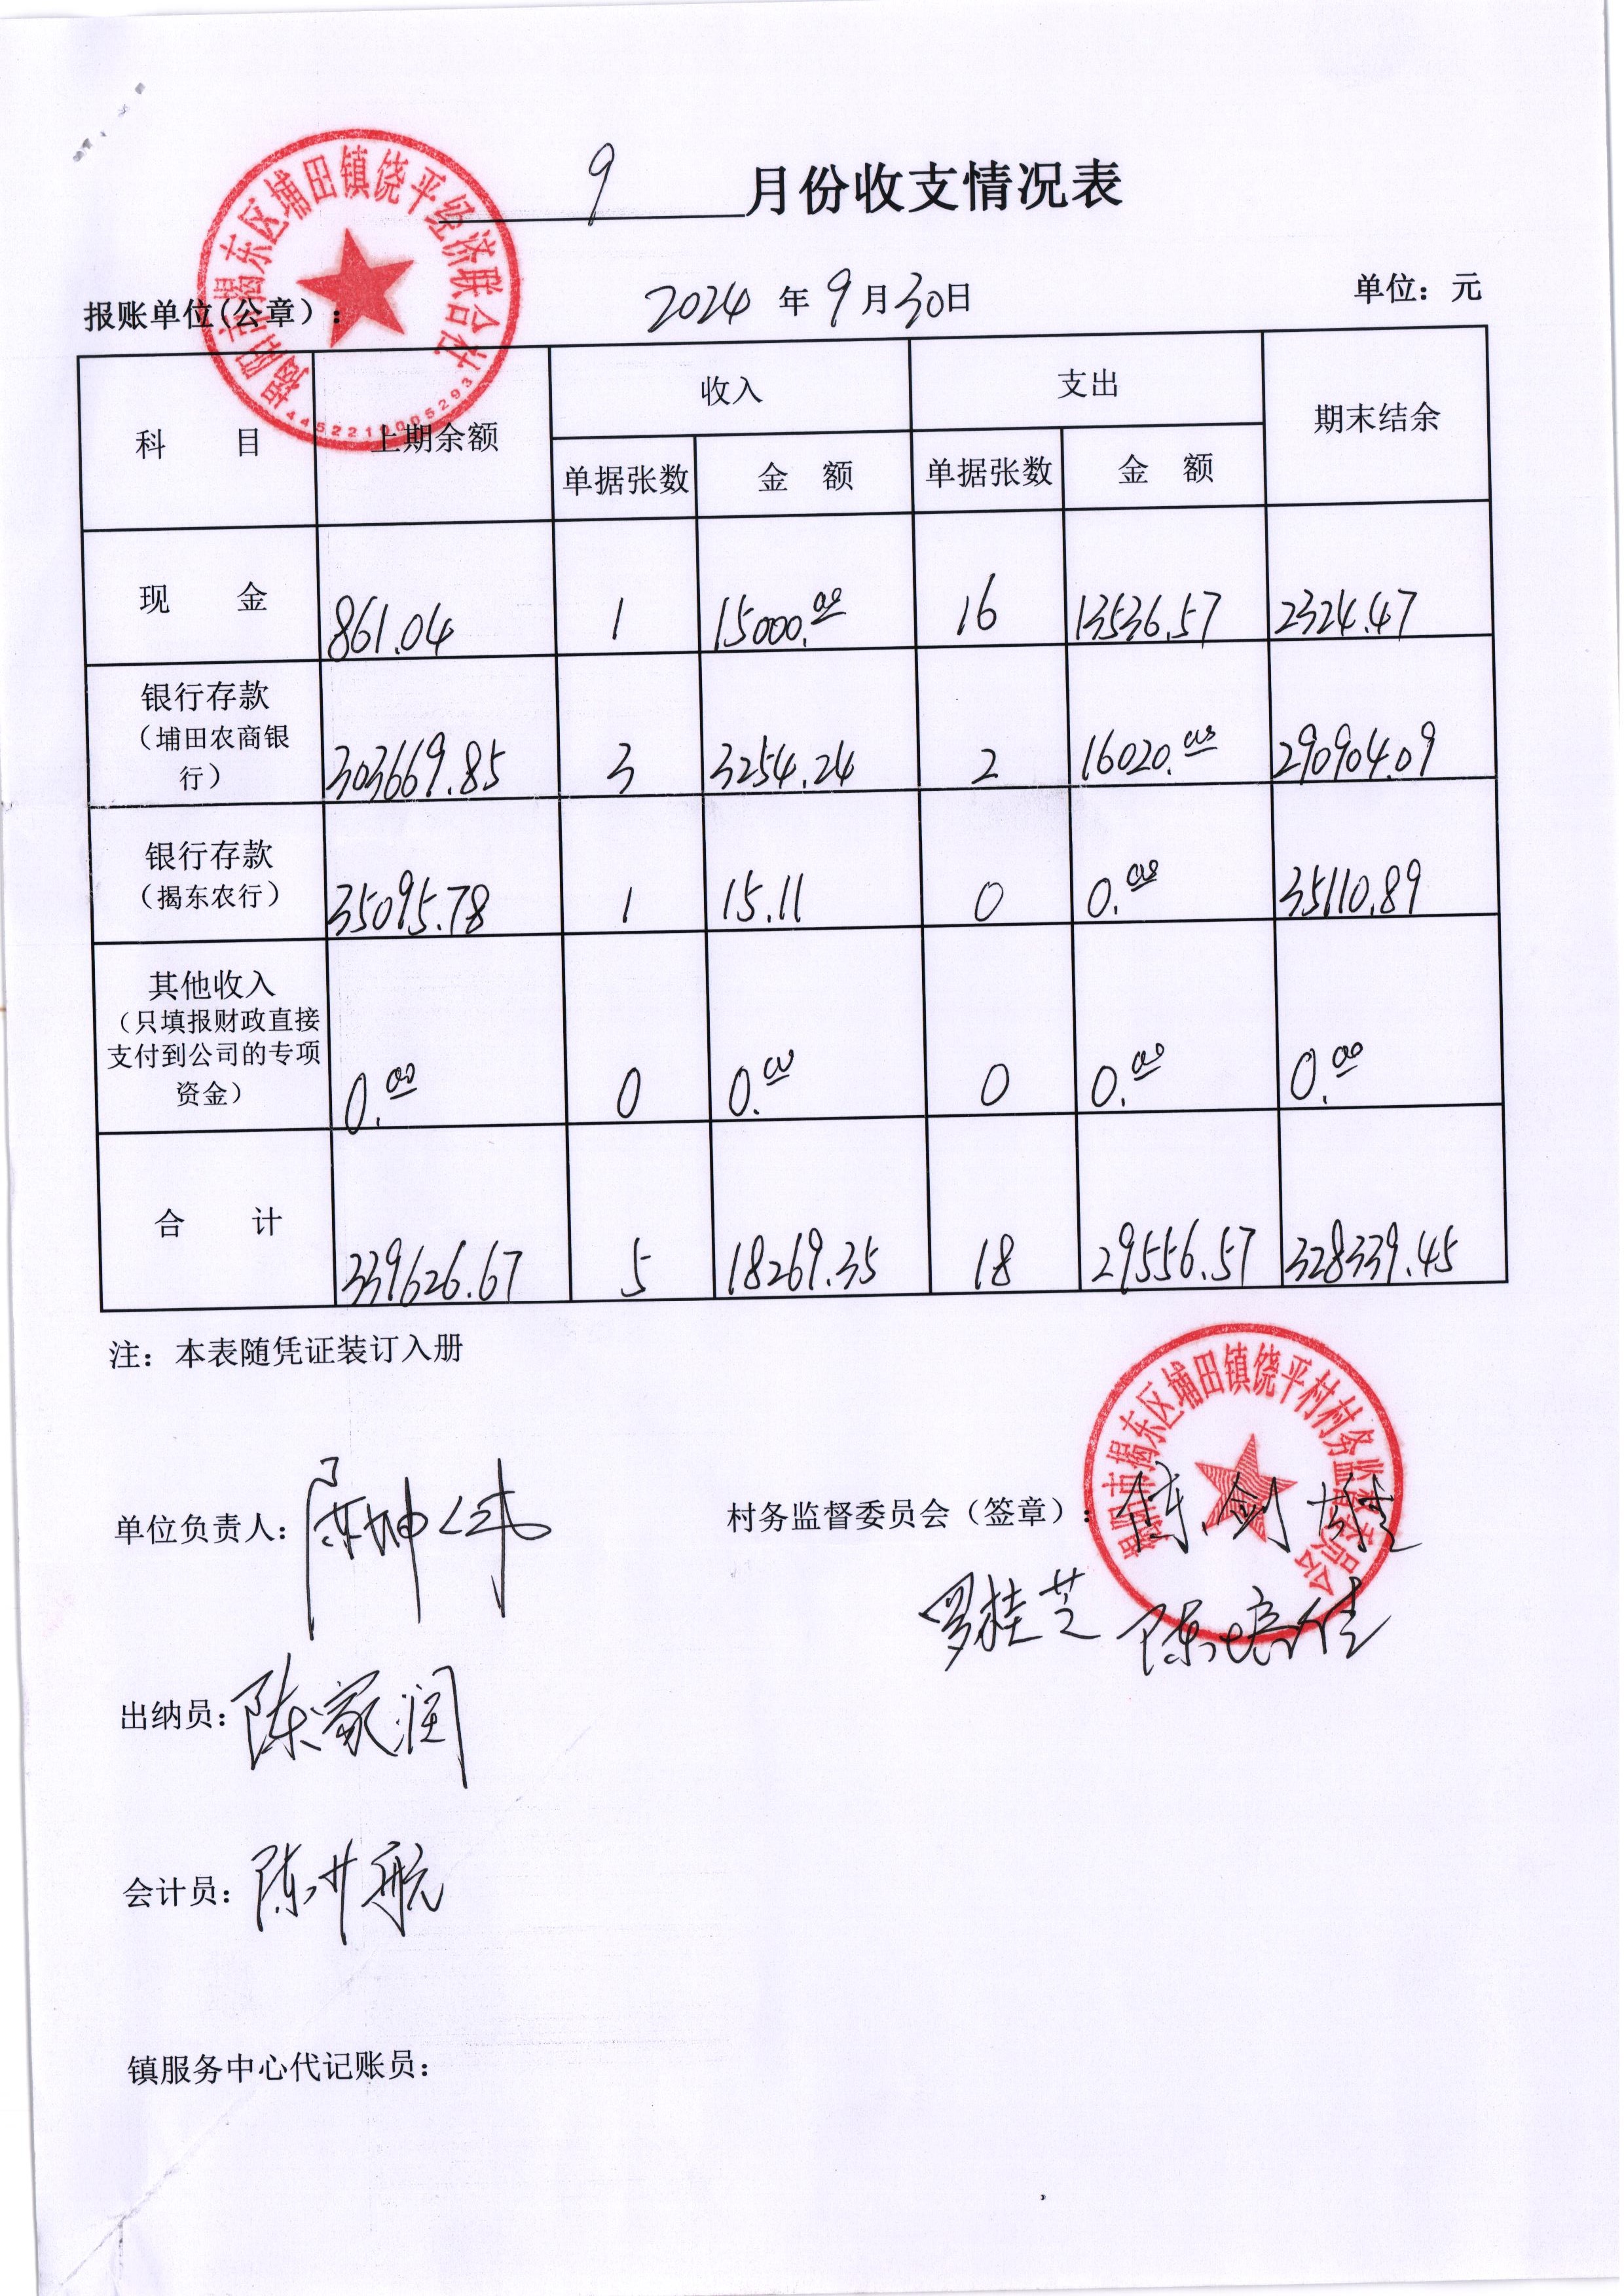 9 月份收支情况表
揭阳市揭东区埔田镇饶平经济联合社
4452210005293
报账单位(公章)：
2024 年 9 月 30 日
单位：元
科 目 上期余额 收入 支出 期末结余
单据张数 金 额 单据张数 金 额
现 金 861.04 1 15000.00 16 13536.57 2324.47
银行存款
（埔田农商银
行） 303669.85 3 3254.24 2 16020.00 290904.09
银行存款
（揭东农行） 35095.78 1 15.11 0 0.00 35110.89
其他收入
（只填报财政直接
支付到公司的专项
资金） 0.00 0 0.00 0 0.00 0.00
合 计 339626.67 5 18269.35 18 29556.57 328339.45
注：本表随凭证装订入册
揭阳市揭东区埔田镇饶平村村务监督委员会
单位负责人：
村务监督委员会（签章）：
罗桂芝 陈培佳
出纳员：陈家润
会计员：陈升航
镇服务中心代记账员：